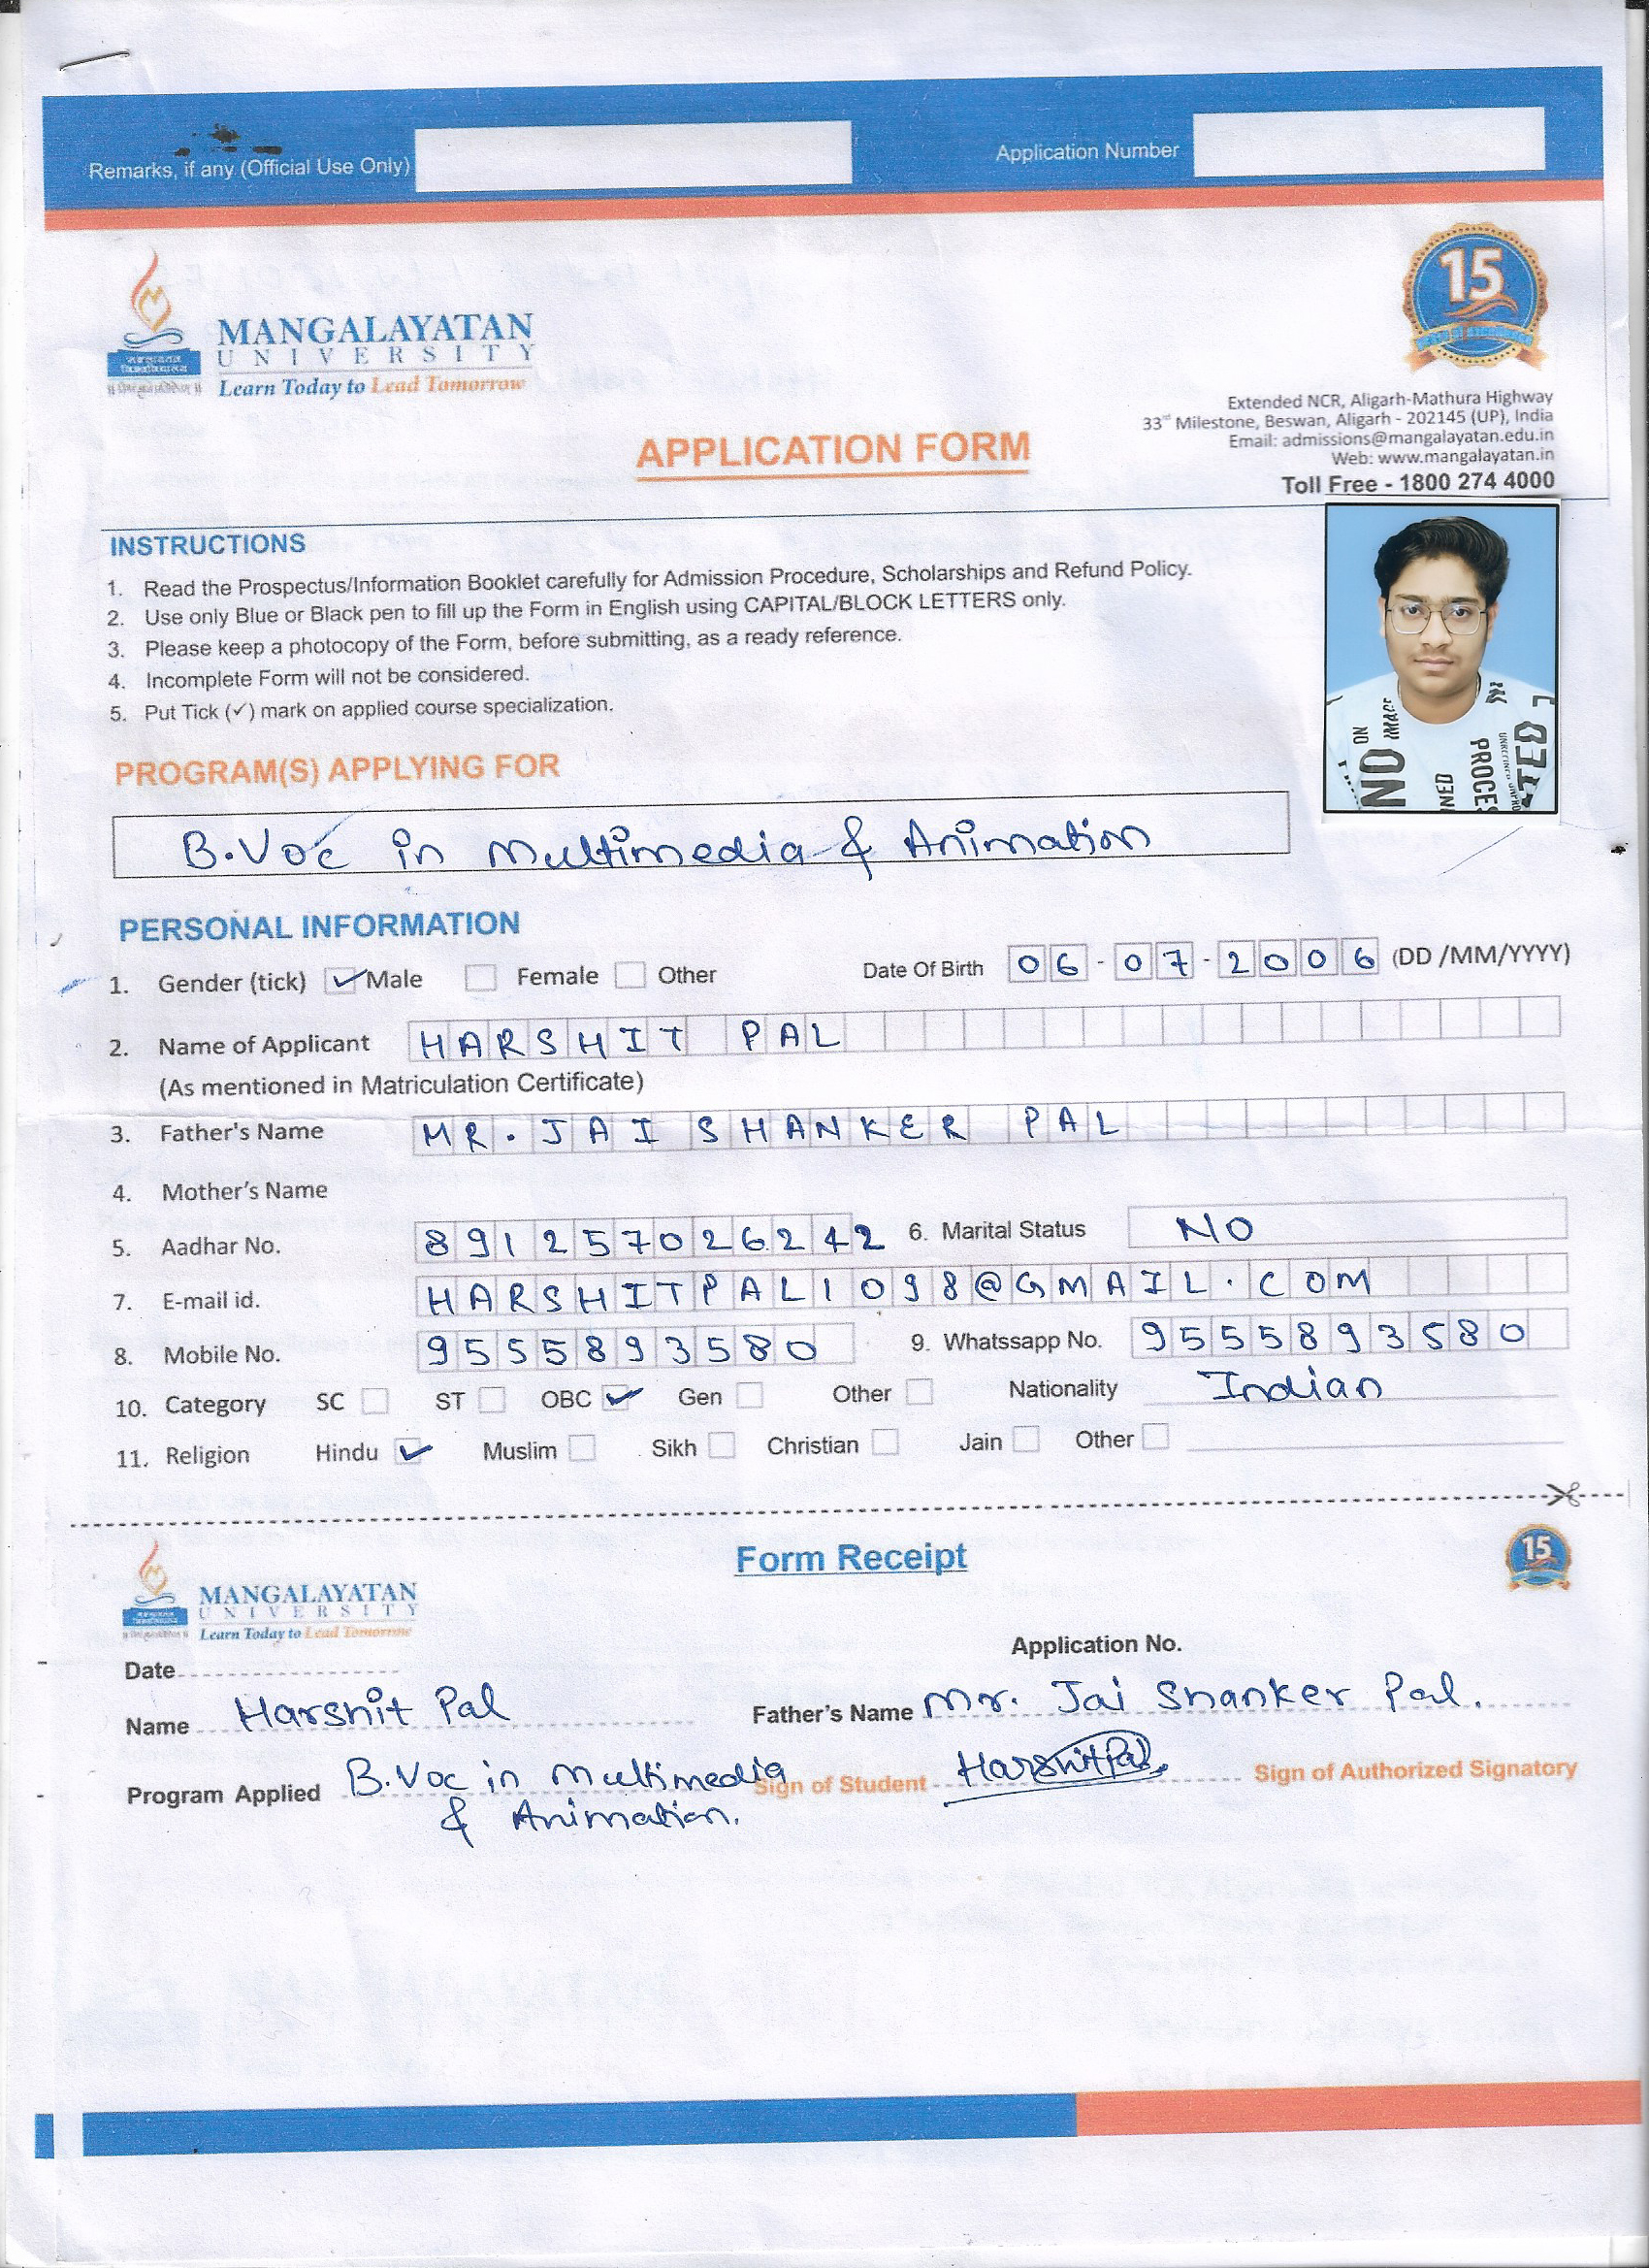 Remarks, if any (Official Use Only)
Application Number
15
MANGALAYATAN
UNIVERSITY
Learn Today to Lead Tomorrow
Extended NCR, Aligarh-Mathura Highway
33rd Milestone, Beswan, Aligarh - 202145 (UP), India
Email: admissions@mangalayatan.edu.in
Web: www.mangalayatan.in
Toll Free - 1800 274 4000
APPLICATION FORM
INSTRUCTIONS
1. Read the Prospectus/Information Booklet carefully for Admission Procedure, Scholarships and Refund Policy.
2. Use only Blue or Black pen to fill up the Form in English using CAPITAL/BLOCK LETTERS only.
3. Please keep a photocopy of the Form, before submitting, as a ready reference.
4. Incomplete Form will not be considered.
5. Put Tick (✓) mark on applied course specialization.
PROGRAM(S) APPLYING FOR
B.Voc in Multimedia & Animation
PERSONAL INFORMATION
1. Gender (tick) ✓ Male Female Other Date Of Birth 06-07-2006 (DD /MM/YYYY)
2. Name of Applicant HARSHIT PAL
(As mentioned in Matriculation Certificate)
3. Father's Name MR. JAI SHANKER PAL
4. Mother's Name
5. Aadhar No. 891257026242 6. Marital Status NO
7. E-mail id. HARSHITPAL1098@GMAIL.COM
8. Mobile No. 9555893580 9. Whatssapp No. 9555893580
10. Category SC ST OBC ✓ Gen Other Nationality Indian
11. Religion Hindu ✓ Muslim Sikh Christian Jain Other
Form Receipt
15
MANGALAYATAN
UNIVERSITY
Learn Today to Lead Tomorrow
Application No.
Date
Name Harshit Pal Father's Name Mr. Jai Shanker Pal.
Program Applied B.Voc in Multimedia & Animation. Sign of Student Harshit Pal Sign of Authorized Signatory